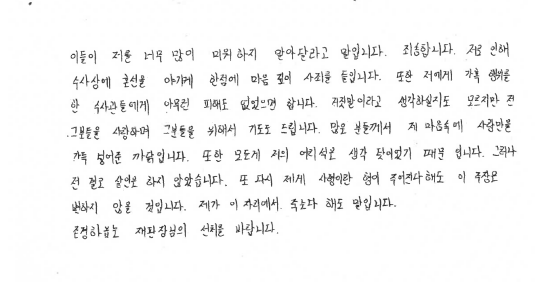 이들이 저를 너무 많이 미워하지 말아달라고 말입니다. 죄송합니다. 저로 인해
수사상에 혼선을 야기케 한점에 마음 깊이 사죄를 드립니다. 또한 저에게 가혹 행위를
한 수사관들에게 아무런 피해도 없었으면 합니다. 거짓말이라고 생각하실지도 모르지만 전
그분들을 사랑하며 그분들을 위해서 기도도 드립니다. 많은 분들께서 제 마음속에 사랑만을
가득 넣어준 까닭입니다. 또한 모든게 저의 어리석은 생각 탓이었기 때문 입니다. 그러나
전 결코 살인은 하지 않았습니다. 또 다시 제게 사형이란 형이 주어진다 해도 이 주장은
변하지 않을 것입니다. 제가 이 자리에서 죽는다 해도 말입니다.
존경하옵는 재판장님의 선처를 바랍니다.